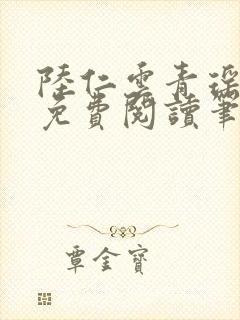 陸仁雲青瑤
免費閱讀筆
覃金寶